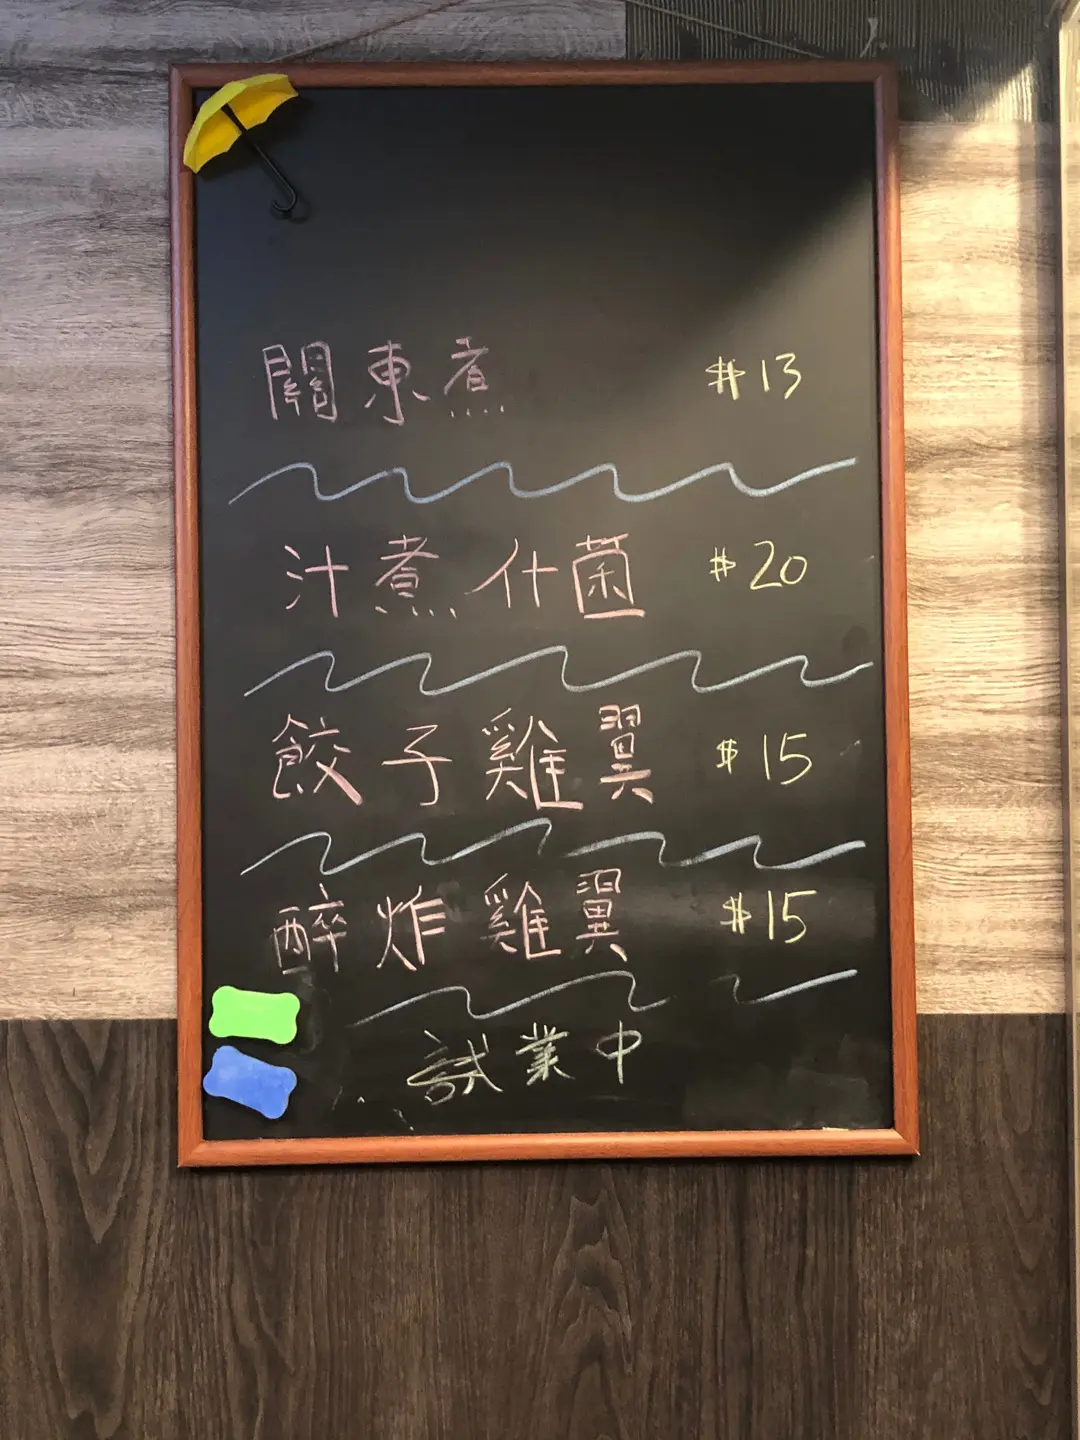 關東煮 $13
汁煮什菌 $20
餃子雞翼 $15
醉炸雞翼 $15
試業中